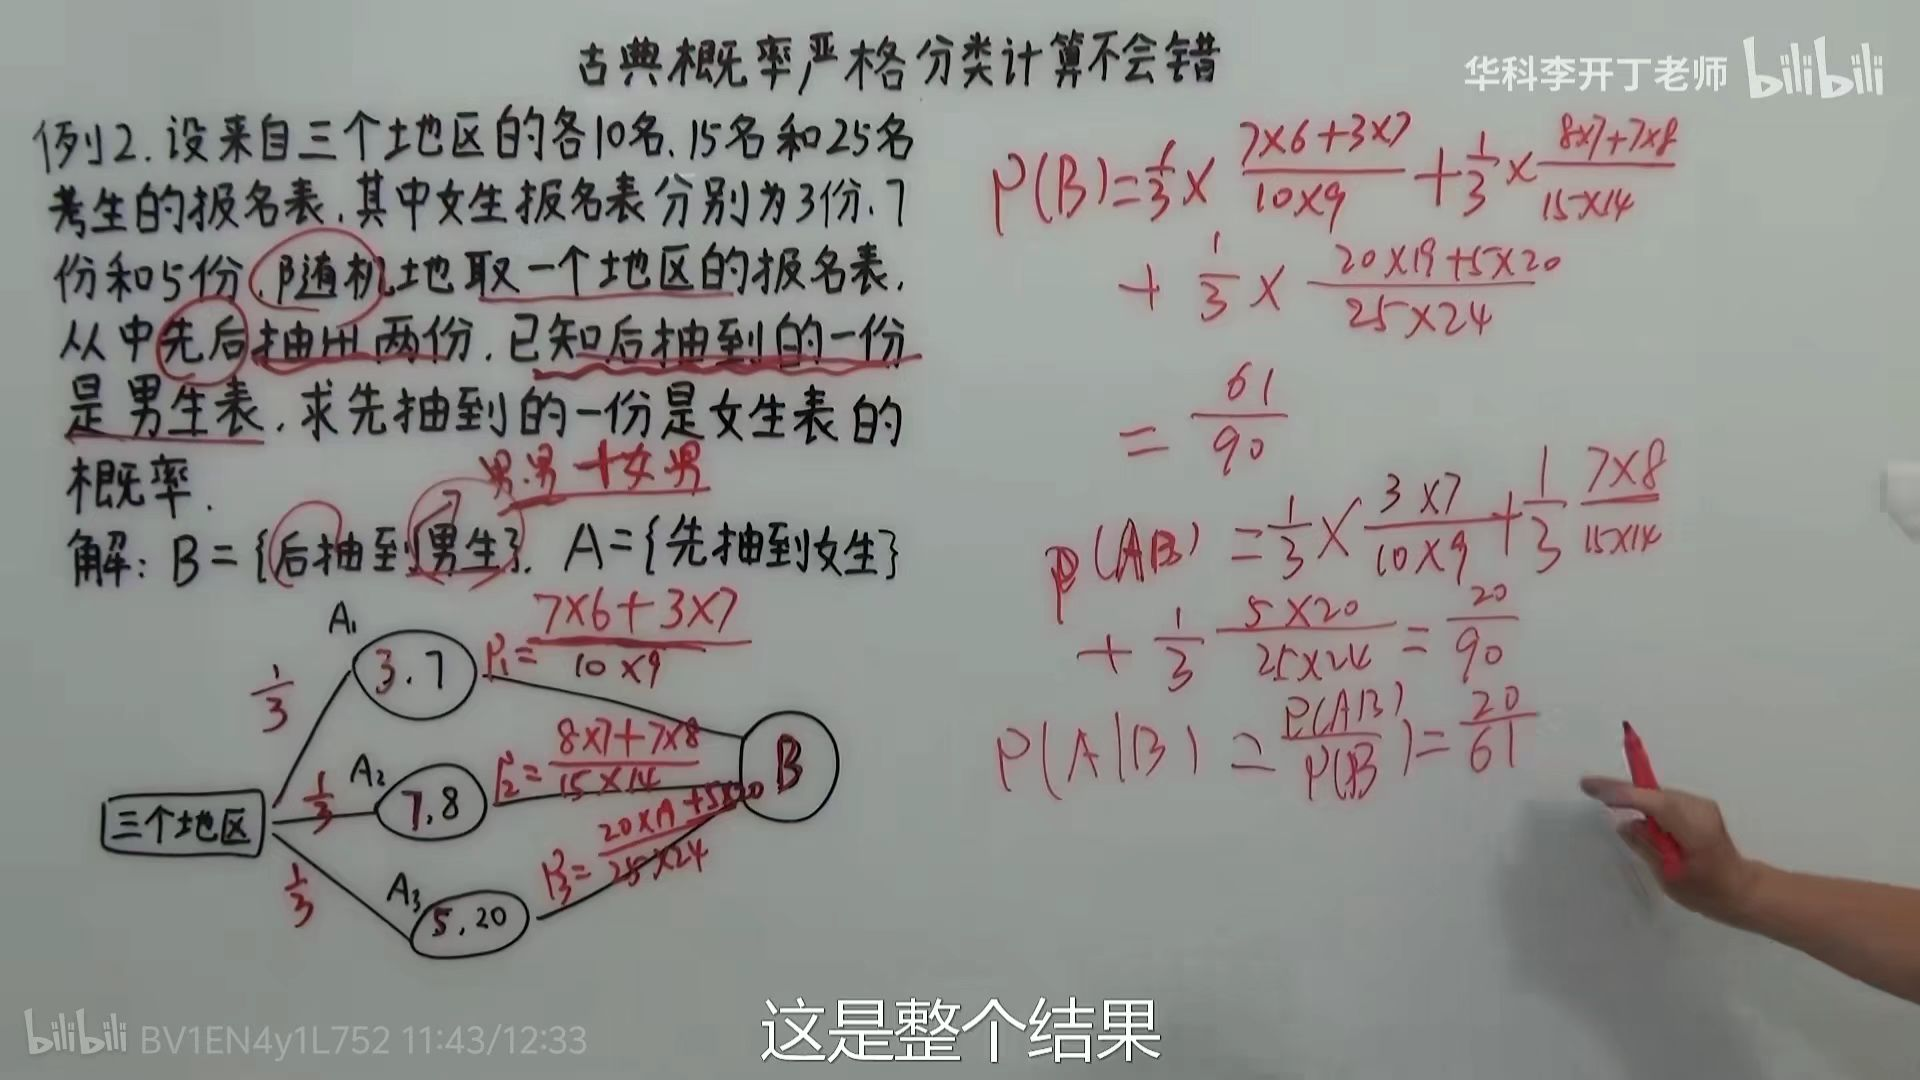 古典概率严格分类计算不会错
华科李开丁老师 bilibili
例2.设来自三个土地区的各10名、15名和25名
考生的报名表,其中女生报名表分别为3份、7
份和5份,随机地取一个地区的报名表,
从中先后抽出两份,已知后抽到的一份
是男生表,求先抽到的一份是女生表的
概率.
男男+女男
解:B={后抽到男生}, A={先抽到女生}
A₁
1/3
3.7
P₁=(7×6+3×7)/(10×9)
A₂
1/3
7,8
P₂=(8×7+7×8)/(15×14)
三个地区
B
1/3
A₃
5,20
P₃=
25×24
P(B)=1/3×(7×6+3×7)/(10×9)+1/3×(8×7+7×8)/(15×14)
+1/3×(20×19+5×20)/(25×24)
=61/90
P(AB)=1/3×(3×7)/(10×9)+1/3 (7×8)/(15×14)
+1/3 (5×20)/(25×24)=20/90
P(A|B)=P(AB)/P(B)=20/61
这是整个结果
bilibili BV1EN4y1L752 11:43/12:33